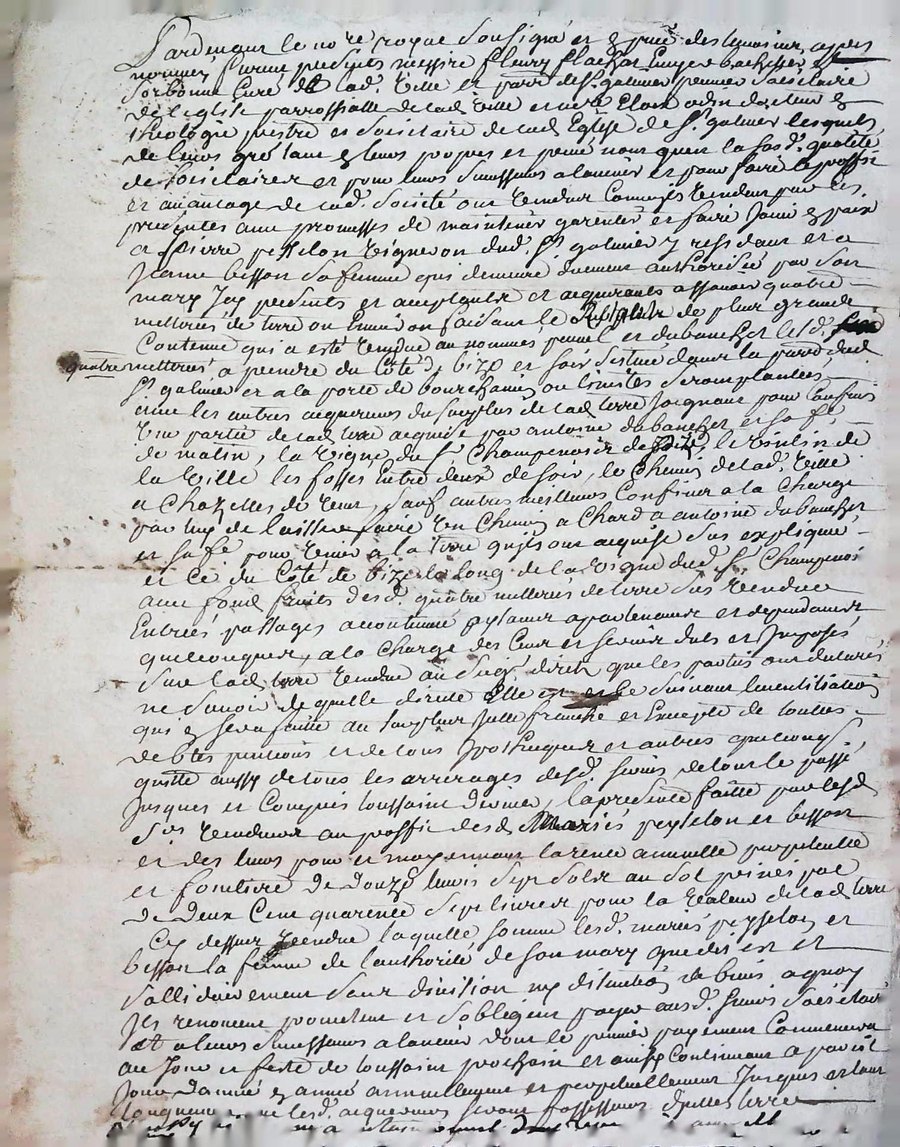 Pardevant le no.re royal soubsigné et en pñce des temoins apres
nommez furent presents messire fleury flachat Bachellier de
Sorbonne Curé de lad. Ville et parr. de St. galmier premier Societaire
de leglise parrossialle de lad. Ville et docteur en
theologie prestre et Societaire de lad. Eglise de St. galmier lesquels
de leurs gré tant en leurs propres et privé nom quen la susd. qualité
de Societaires et pour leurs Successeurs a lavenir et pour faire le proffit
et avantage de lad. Société ont Vendu Vendent par ces
presentes avec promesses de maintenir garentir et faire Jouir en paix
a pierre peysselon Vigneron dud. St. galmier y residant et a
Jeanne besson Sa femme qui demeure dument authorisée par son
mary Icy presents et acceptants et acquerants assavoir quatre
metterées de terre ou Environ faisant le de plus grande
Contenue qui a esté Vendue au nommés et dubanchet lesd.
quatre metterées a prendre du Côté de bize et soir située dans la parr. dud.
St. galmier et a la porte de
avec les autres acquereurs du surplus de lad. terre Joignant pour Confins
Une partie de lad. terre acquise par antoine dubanchet et sa fe.
de matin, la Vigne du Sr. Champenois de bize, le de
la Ville les fossés Entre deux de soir, le Chemin de lad. Ville
a Chazelles de Vent, Sauf autres meilleurs Confins a la Charge
par Eux de laisser faire Un Chemin a Chard a antoine dubanchet
et sa fe. pour Venir a la terre quils ont acquise sus expliquée
et ce du Côté de bize le long de la Vigne dud. Sr. Champenois
avec fond fruits desd. quatre metterées de terre sus Vendue
Entrées passages accoutumé aysances apartenances et dependances
quelconques, a la Charge des Cens et servis dubs et Imposés
Sur lad. terre Vendue au Seigr. direct que les partis ont declarés
ne Savoir de quelle directe Elle est Suivant lventilation
qui en sera faitte au Surplus Julle franche et Exempte de touttes
debtes pentions et de tous hypotheques et autres quelconqs.
quitte aussy de tous les arrerages desd. Servis de tout le passé
Jusques et Compris toussaint dernier, la presente faitte par lesd.
Srs. Vendeurs au proffit desd. Mariés peysselon et besson
et des leurs pour et moyennant la rente annuelle perpetuelle
et fontiere De Douze livres Sept Sols au Sol
De Deux Cent quarente Sept livres pour la Valeur de lad. terre
Cy dessus Vendue laquelle Somme lesd. mariés peysselon et
besson la femme de lauthorité de son mary que dit est et
Sollidairement Sans division ny distinction de biens a quoy
Ils renoncent promettent et Sobligent payer ausd. Sieurs Societaires
et a leurs Successeurs a lavenir dont le premier payement Commencera
au Jour et feste de toussaint prochain et ainsy Continuant a pareil
Jour Dannée en année annuellement et perpetuellement Jusques et tant
Longuement que lesd. acquereurs seront possesseurs de terre